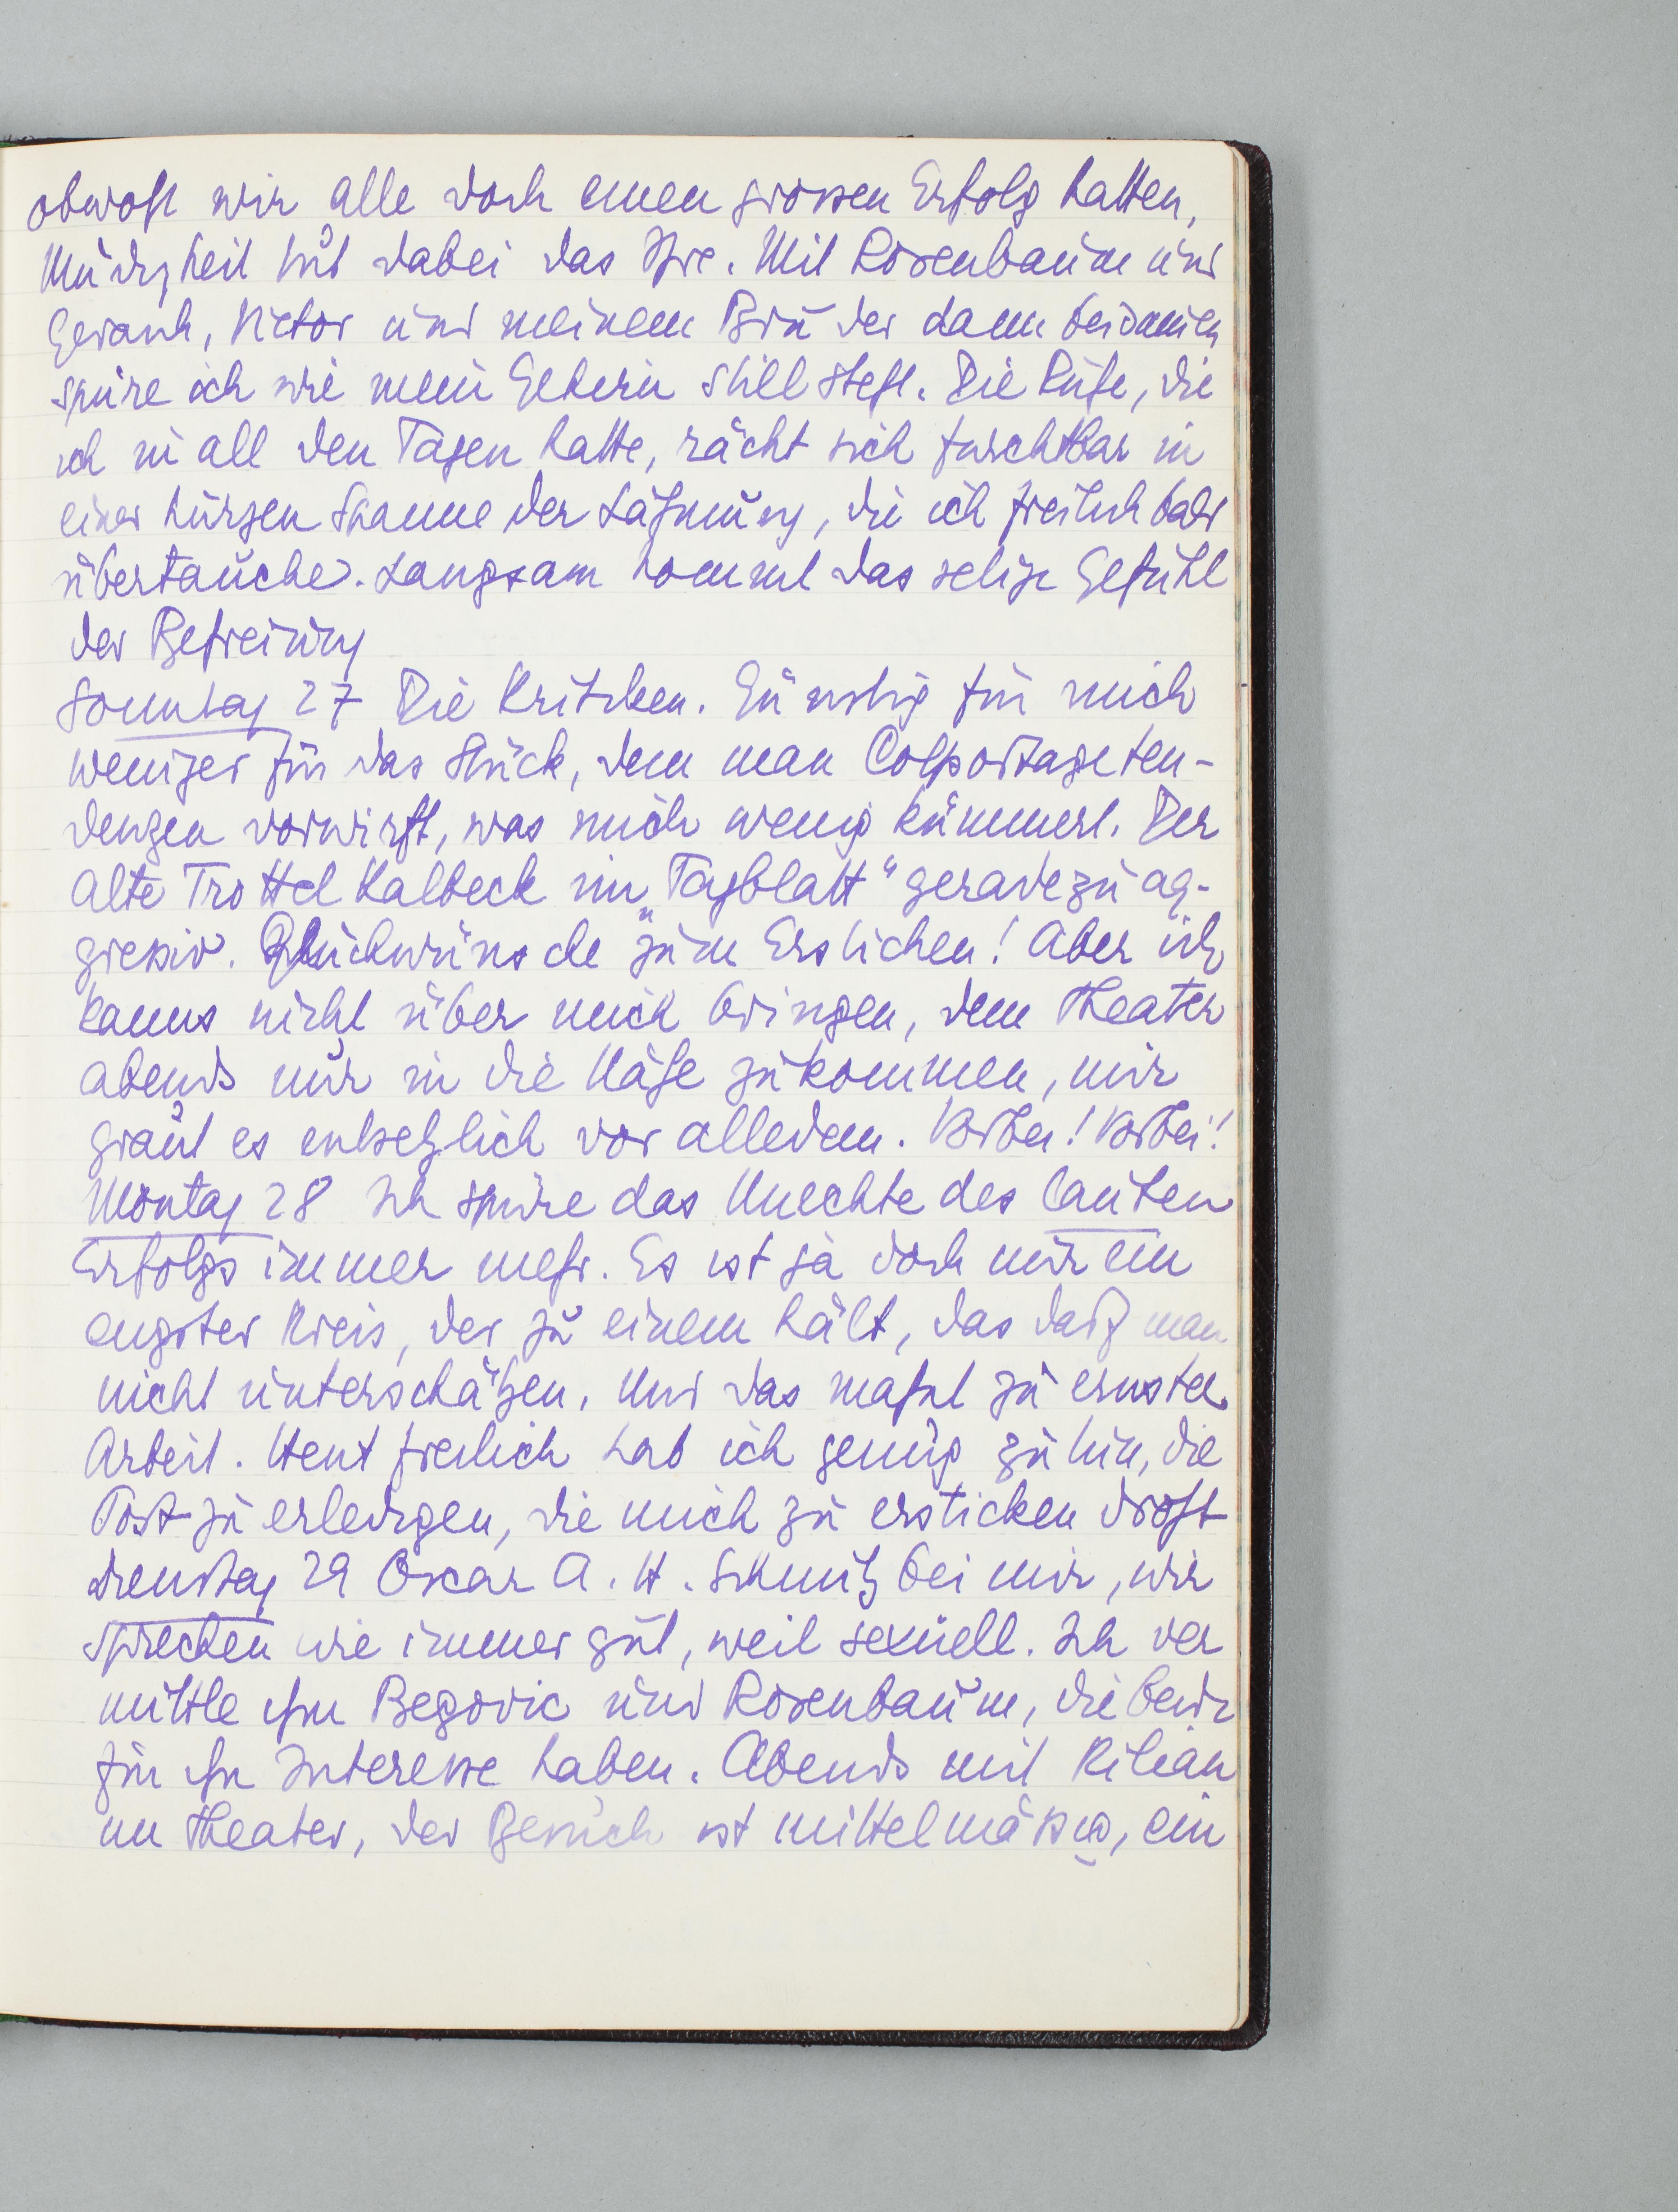 obwohl wir alle doch einen grossen Erfolg hatten,
Müdigkeit tut dabei das Ihre. Mit Rosenbaum und
Gerasch, Victor und meinem Bruder dann beisammen
spüre ich wie mein Gehirn still steht. Die Ruhe, die
ich in all den Tagen hatte, rächt sich furchtbar in
einer kurzen Spanne der Lähmung, die ich freilich bald
übertauche. Langsam kommt das selige Gefühl
der Befreiung
Sonntag 27 Die Kritiken. Günstig für mich
weniger für das Stück, dem man Colportageten-
denzen vorwirft, was mich wenig kümmert. Der
alte Trottel Kalbeck im „Tagblatt" geradezu ag-
gressiv. Glückwünsche zum Ersticken! Aber ich
kanns nicht über mich bringen, dem Theater
abends nur in die Nähe zu kommen, mir
graut es entsetzlich vor alledem. Vorbei! Vorbei!
Montag 28 Ich spüre das Unechte des lauten
Erfolgs immer mehr. Es ist ja doch nur ein
engster Kreis, der zu einem hält, das darf man
nicht unterschätzen. Und das mahnt zu ernster
Arbeit. Heut freilich hab ich genug zu tun, die
Post zu erledigen, die mich zu ersticken droht
Dienstag 29 Oscar A. H. Schmitz bei mir, wir
sprechen wie immer gut, weil sexuell. Ich ver
mittle ihm Begovic und Rosenbaum, die beide
für ihn Interesse haben. Abends mit Kilian
im Theater, der Besuch ist mittelmässig, ein